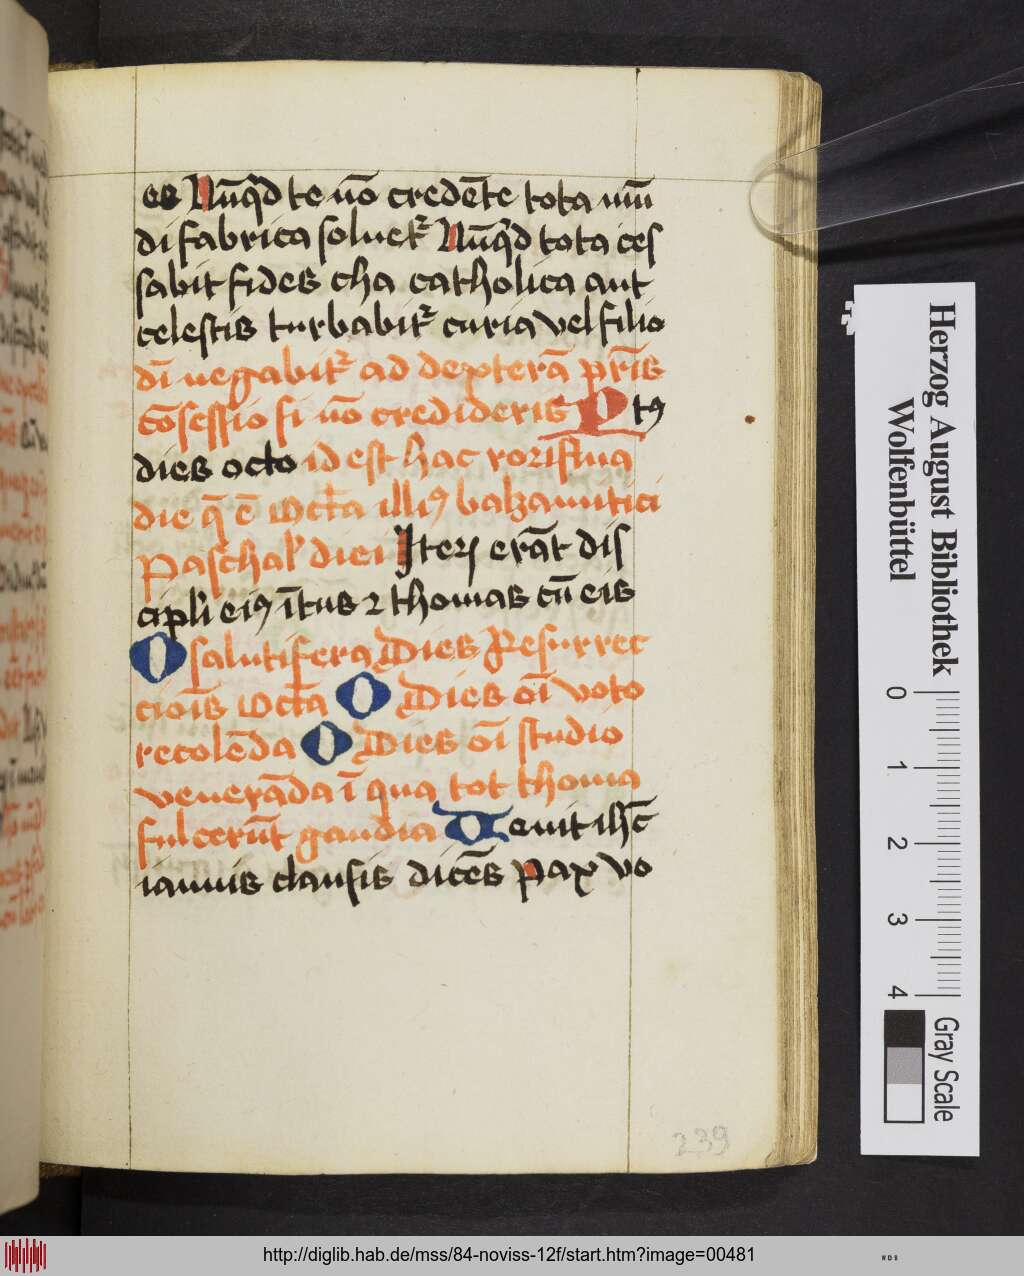 es Nūqͥd te nō credēte tota mū
di fabrica soluetͬ Nūqͥd tota ces
sabit fides cħa catholica aut
celestis turbabitͬ curia vel filio
dī negabitͬ ad dexterā pr̄is
Cōsessio si nō credideris Ptꝰ
dies octo id est hac rorifl̄ua
die q̄ ē Octa illiꝰ balzamitici
Paschal' diei Iterꝫ erāt dis
cipl̄i eiꝰ ītus ⁊ thomas cū eis
O salutifera Dies Resurrec
cioīs Octa O Dies oī voto
recolēda O Dies oī studio
venerāda ī qua tot thoma
fulcerūt gaudia Uenit ihc̄
ianuis clausis dicēs Pax vo
239
Herzog August Bibliothek
Wolfenbüttel
0 1 2 3 4
Gray Scale
http://diglib.hab.de/mss/84-noviss-12f/start.htm?image=00481